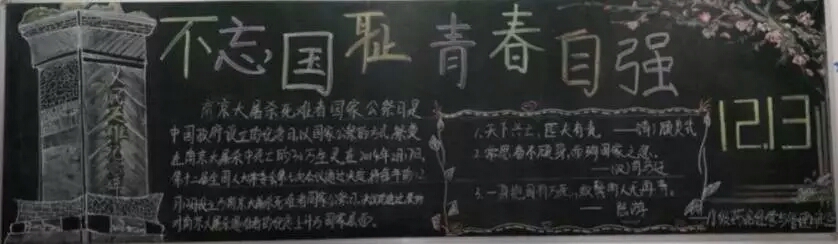 不忘国耻 青春自强
南京大屠杀死难者国家公祭日是
中国政府设立的纪念日,以国家公祭的方式,祭奠
在南京大屠杀中死亡的30万生灵在2014年2月27日,
第十二届全国人大常委会第七次会议通过决定,将每年的12
月13日设立为南京大屠杀死难者国家公祭日,决议的通过
对南京大屠杀遇难者的纪念上升为国家层面。
1.天下兴亡,匹夫有责。——清 顾炎武
2.常思奋不顾身,而殉国家之急。
——汉 司马迁
3.一身报国有万死,双鬓向人无再青。
——陆游
12.13